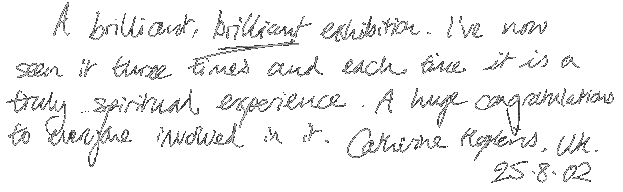 A brilliant, brilliant exhibition. I've now
seen it three times and each time it is a
truly spiritual experience. A huge congratulations
to everyone involved in it. Catherine UK.
25.8.02